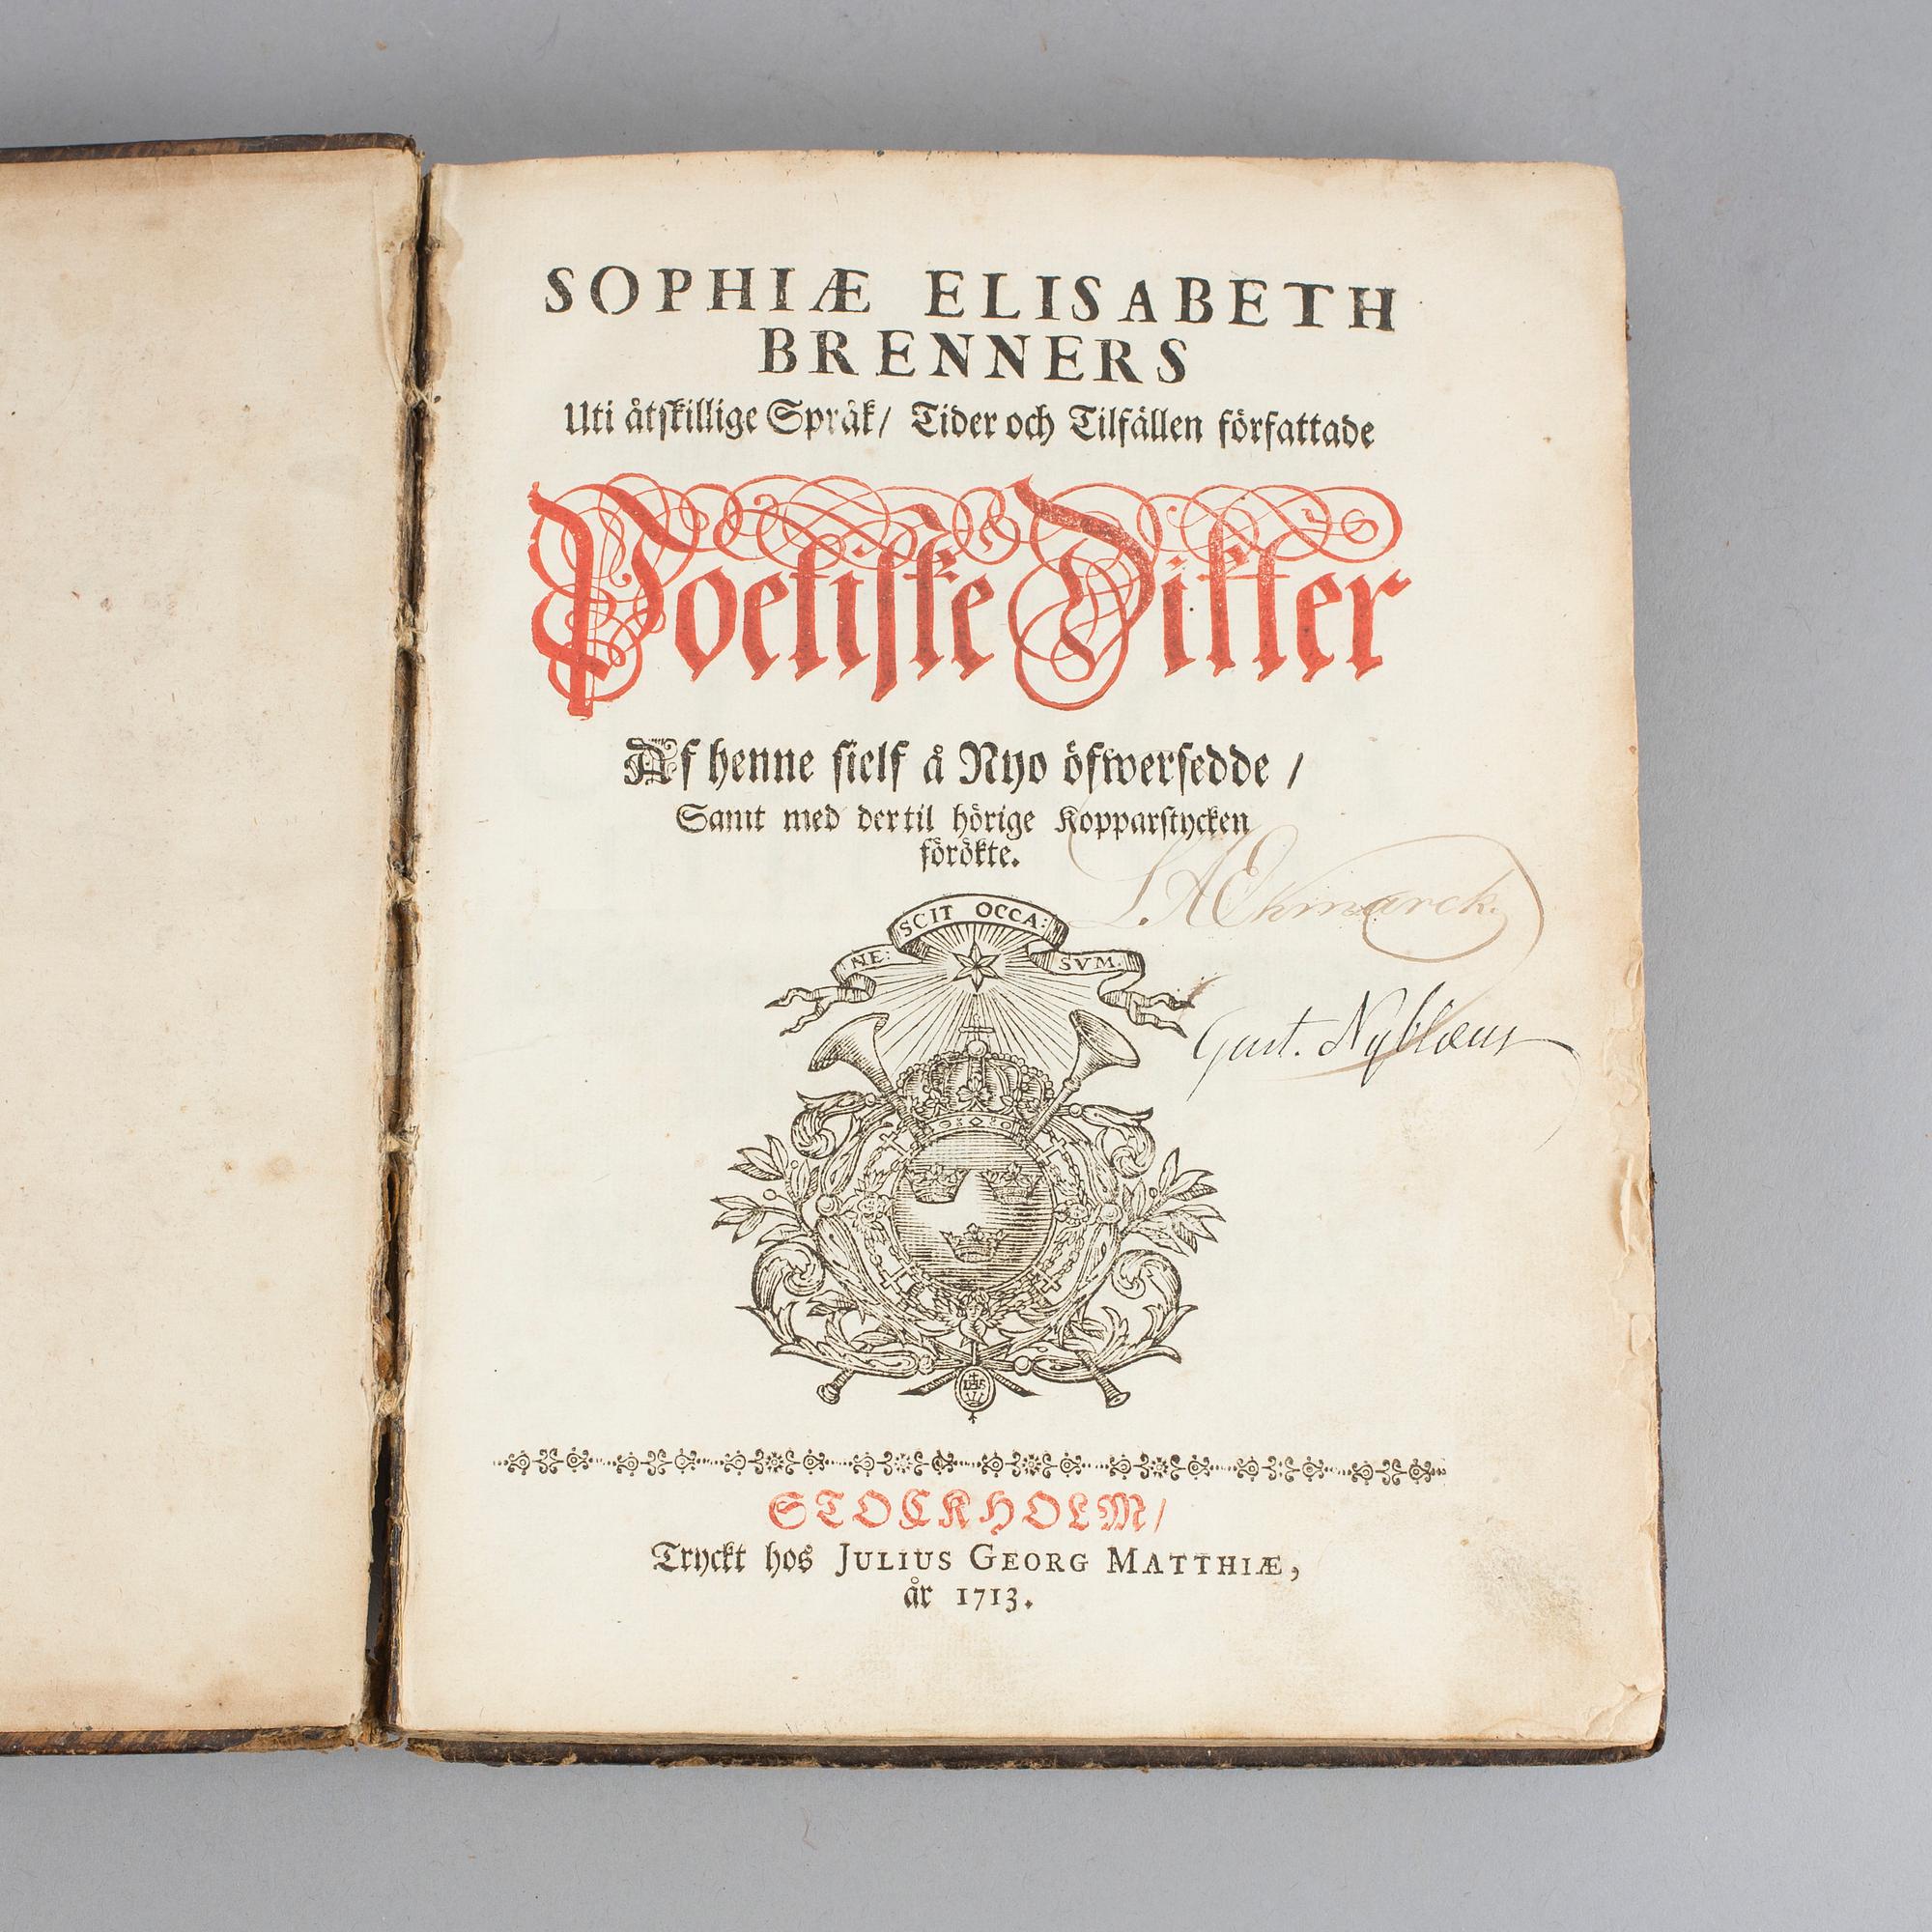 SOPHIÆ ELISABETH
BRENNERS
Uti åtskillige Språk/ Tider och Tilfällen författade
Poetiske Dikter
Af henne sielf å Nyo öfwersedde /
Samt med der til hörige Kopparstycken
förökte.
L. A Ekmarck.
NE: SCIT OCCA: SVM.
Gust. Nyblæus
STOCKHOLM/
Tryckt hos JULIUS GEORG MATTHIÆ,
år 1713.